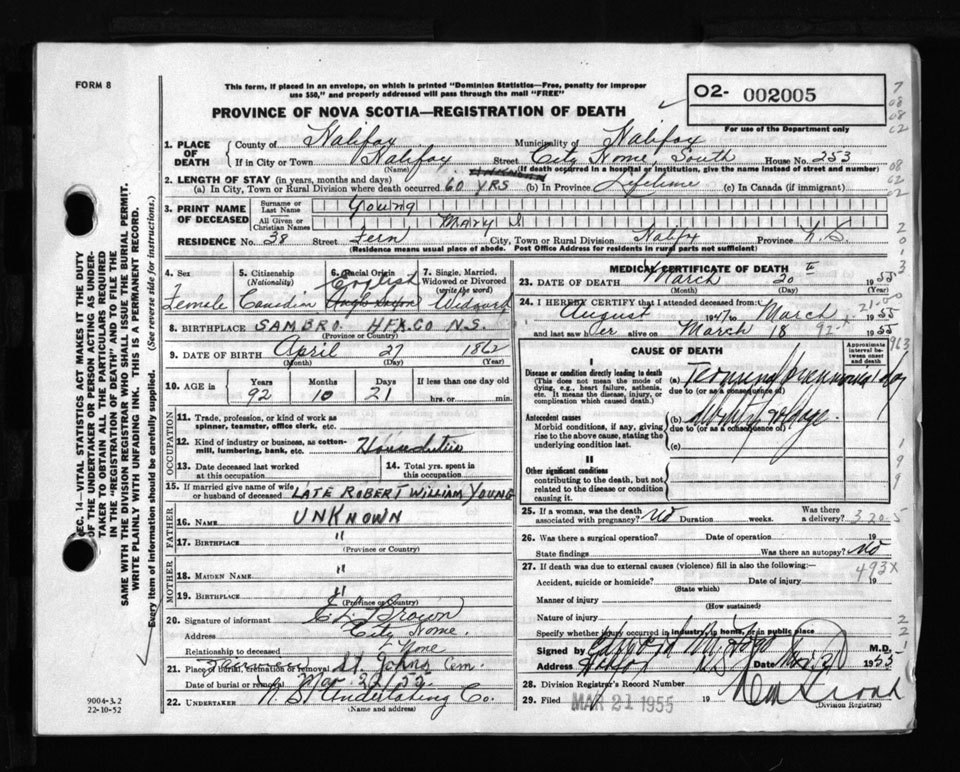 FORM 8
This form, if placed in an envelope, on which is printed "Dominion Statistics—Free, penalty for improper
use $50," and properly addressed will pass through the mail "FREE"
PROVINCE OF NOVA SCOTIA—REGISTRATION OF DEATH
O2- 002005
For use of the Department only
1. PLACE OF DEATH
County of Halifax Municipality of Halifax
If in City or Town Halifax Street City Home, South House No. 253
(Name) (If death occurred in a hospital or institution, give the name instead of street and number)
2. LENGTH OF STAY (in years, months and days)
(a) In City, Town or Rural Division where death occurred 60 YRS (b) In Province Lifetime (c) In Canada (if immigrant)
3. PRINT NAME OF DECEASED
Surname or Last Name Young
All Given or Christian Names MARY I
RESIDENCE No. 38 Street Fern City, Town or Rural Division Halifax Province N.S.
(Residence means usual place of abode. Post Office Address for residents in rural parts not sufficient)
4. Sex Female
5. Citizenship (Nationality) Canadian
6. Racial Origin English
7. Single, Married, Widowed or Divorced (write the word)
8. BIRTHPLACE SAMBRO HFX.CO N.S.
(Province or Country)
9. DATE OF BIRTH April 27 1862
(Month) (Day) (Year)
10. AGE in Years 92 Months 10 Days 21 If less than one day old
hrs. or min.
OCCUPATION
11. Trade, profession, or kind of work as
spinner, teamster, office clerk, etc.
12. Kind of industry or business, as cotton-
mill, lumbering, bank, etc.
13. Date deceased last worked
at this occupation
14. Total yrs. spent in
this occupation
15. If married give name of wife
or husband of deceased LATE ROBERT WILLIAM YOUNG
FATHER
16. NAME UNKNOWN
17. BIRTHPLACE "
(Province or Country)
MOTHER
18. MAIDEN NAME "
19. BIRTHPLACE "
(Province or Country)
20. Signature of informant Brown
Address City Home.
Relationship to deceased None
21. Place of burial, cremation or removal St. Johns Cem.
Date of burial or removal Mar 22/55
22. UNDERTAKER N.S. Undertaking Co.
(Name and address)
MEDICAL CERTIFICATE OF DEATH
23. DATE OF DEATH March 20 1955
(Month) (Day)
24. I HEREBY CERTIFY that I attended deceased from:
August 1947 to March 1955
and last saw her alive on March 18 1955
CAUSE OF DEATH
Approximate interval between onset and death
I
Disease or condition directly leading to death
(This does not mean the mode of
dying, e.g., heart failure, asthenia,
etc. It means the disease, injury, or
complication which caused death.)
(a) 1 day
due to (or as a consequence of)
Antecedent causes
Morbid conditions, if any, giving
rise to the above cause, stating the
underlying condition last.
(b)
due to (or as a consequence of)
(c)
II
Other significant conditions
contributing to the death, but not
related to the disease or condition
causing it.
25. If a woman, was the death
associated with pregnancy? No Duration weeks. Was there
a delivery?
26. Was there a surgical operation? Date of operation 19
State findings Was there an autopsy? No
27. If death was due to external causes (violence) fill in also the following:
493X
Accident, suicide or homicide? Date of injury 19
(State which)
Manner of injury
(How sustained)
Nature of injury
Specify whether injury occurred in industry, in home, or in public place
Signed by M.D.
Address Date 1955
28. Division Registrar's Record Number
29. Filed MAR 21 1955 19
(Division Registrar)
9004-3.2
22-10-52
SEC. 14—VITAL STATISTICS ACT MAKES IT THE DUTY
OF THE UNDERTAKER OR PERSON ACTING AS UNDER-
TAKER TO OBTAIN ALL THE PARTICULARS REQUIRED
IN THE "REGISTRATION OF DEATH" AND TO FILE THE
SAME WITH THE DIVISION REGISTRAR WHO SHALL ISSUE THE BURIAL PERMIT.
WRITE PLAINLY WITH UNFADING INK. THIS IS A PERMANENT RECORD.
Every item of information should be carefully supplied. (See reverse side for instructions.)